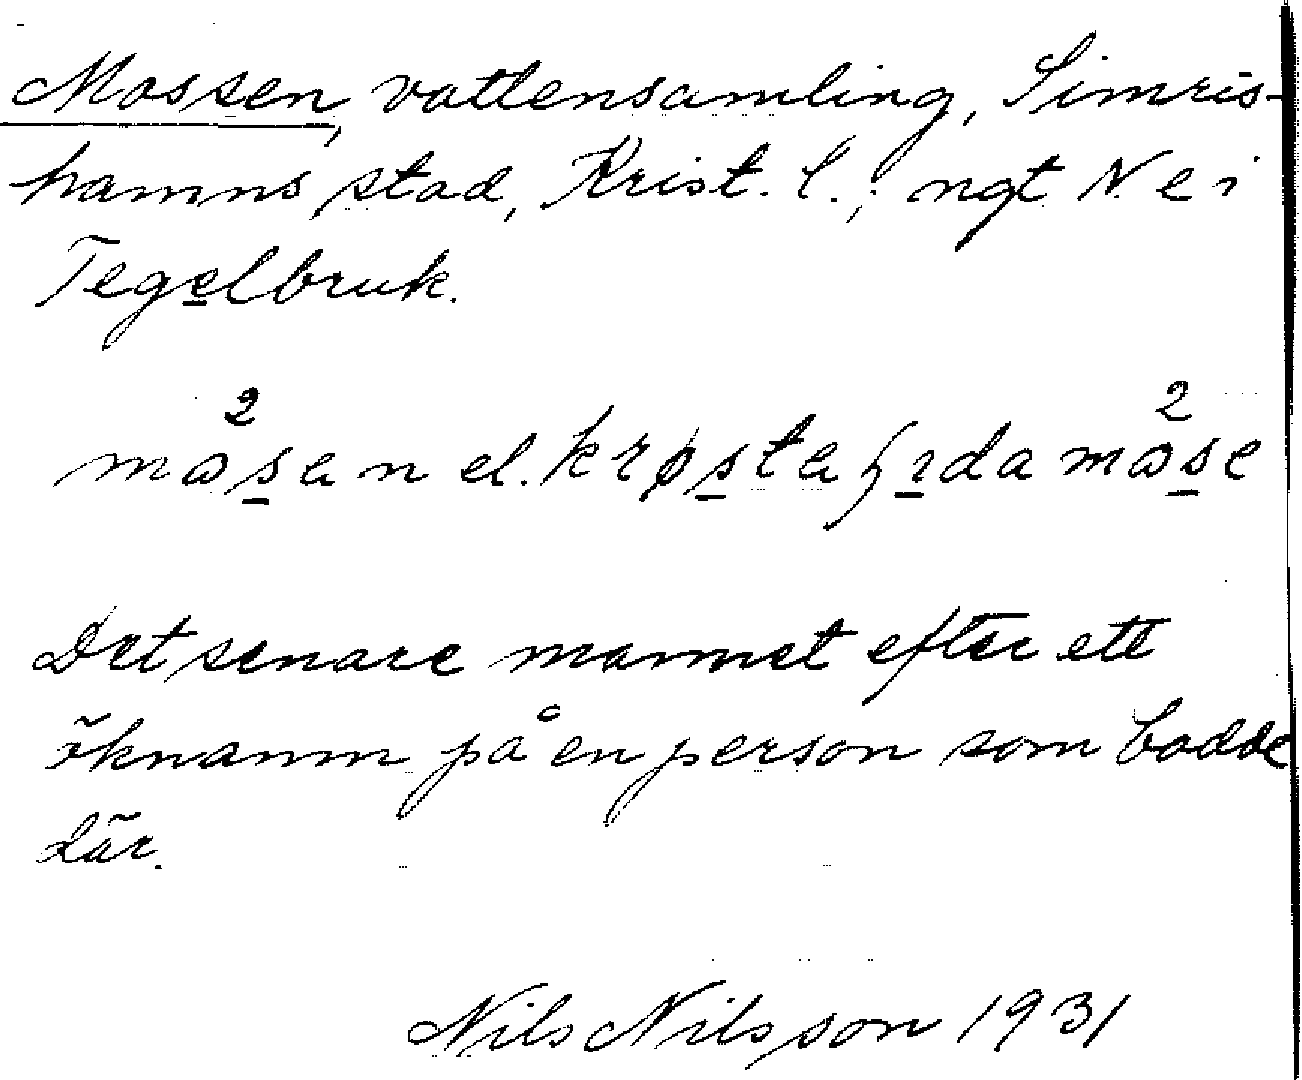 Mossen, vattensamling, Simris-
hamns stad, Krist. l.; ngt N e i
Tegelbruk.
2 2
måsan el. krøsta da måse
Det senare namnet efter ett
öknamn på en person som bodde
där.
Nils Nilsson 1931